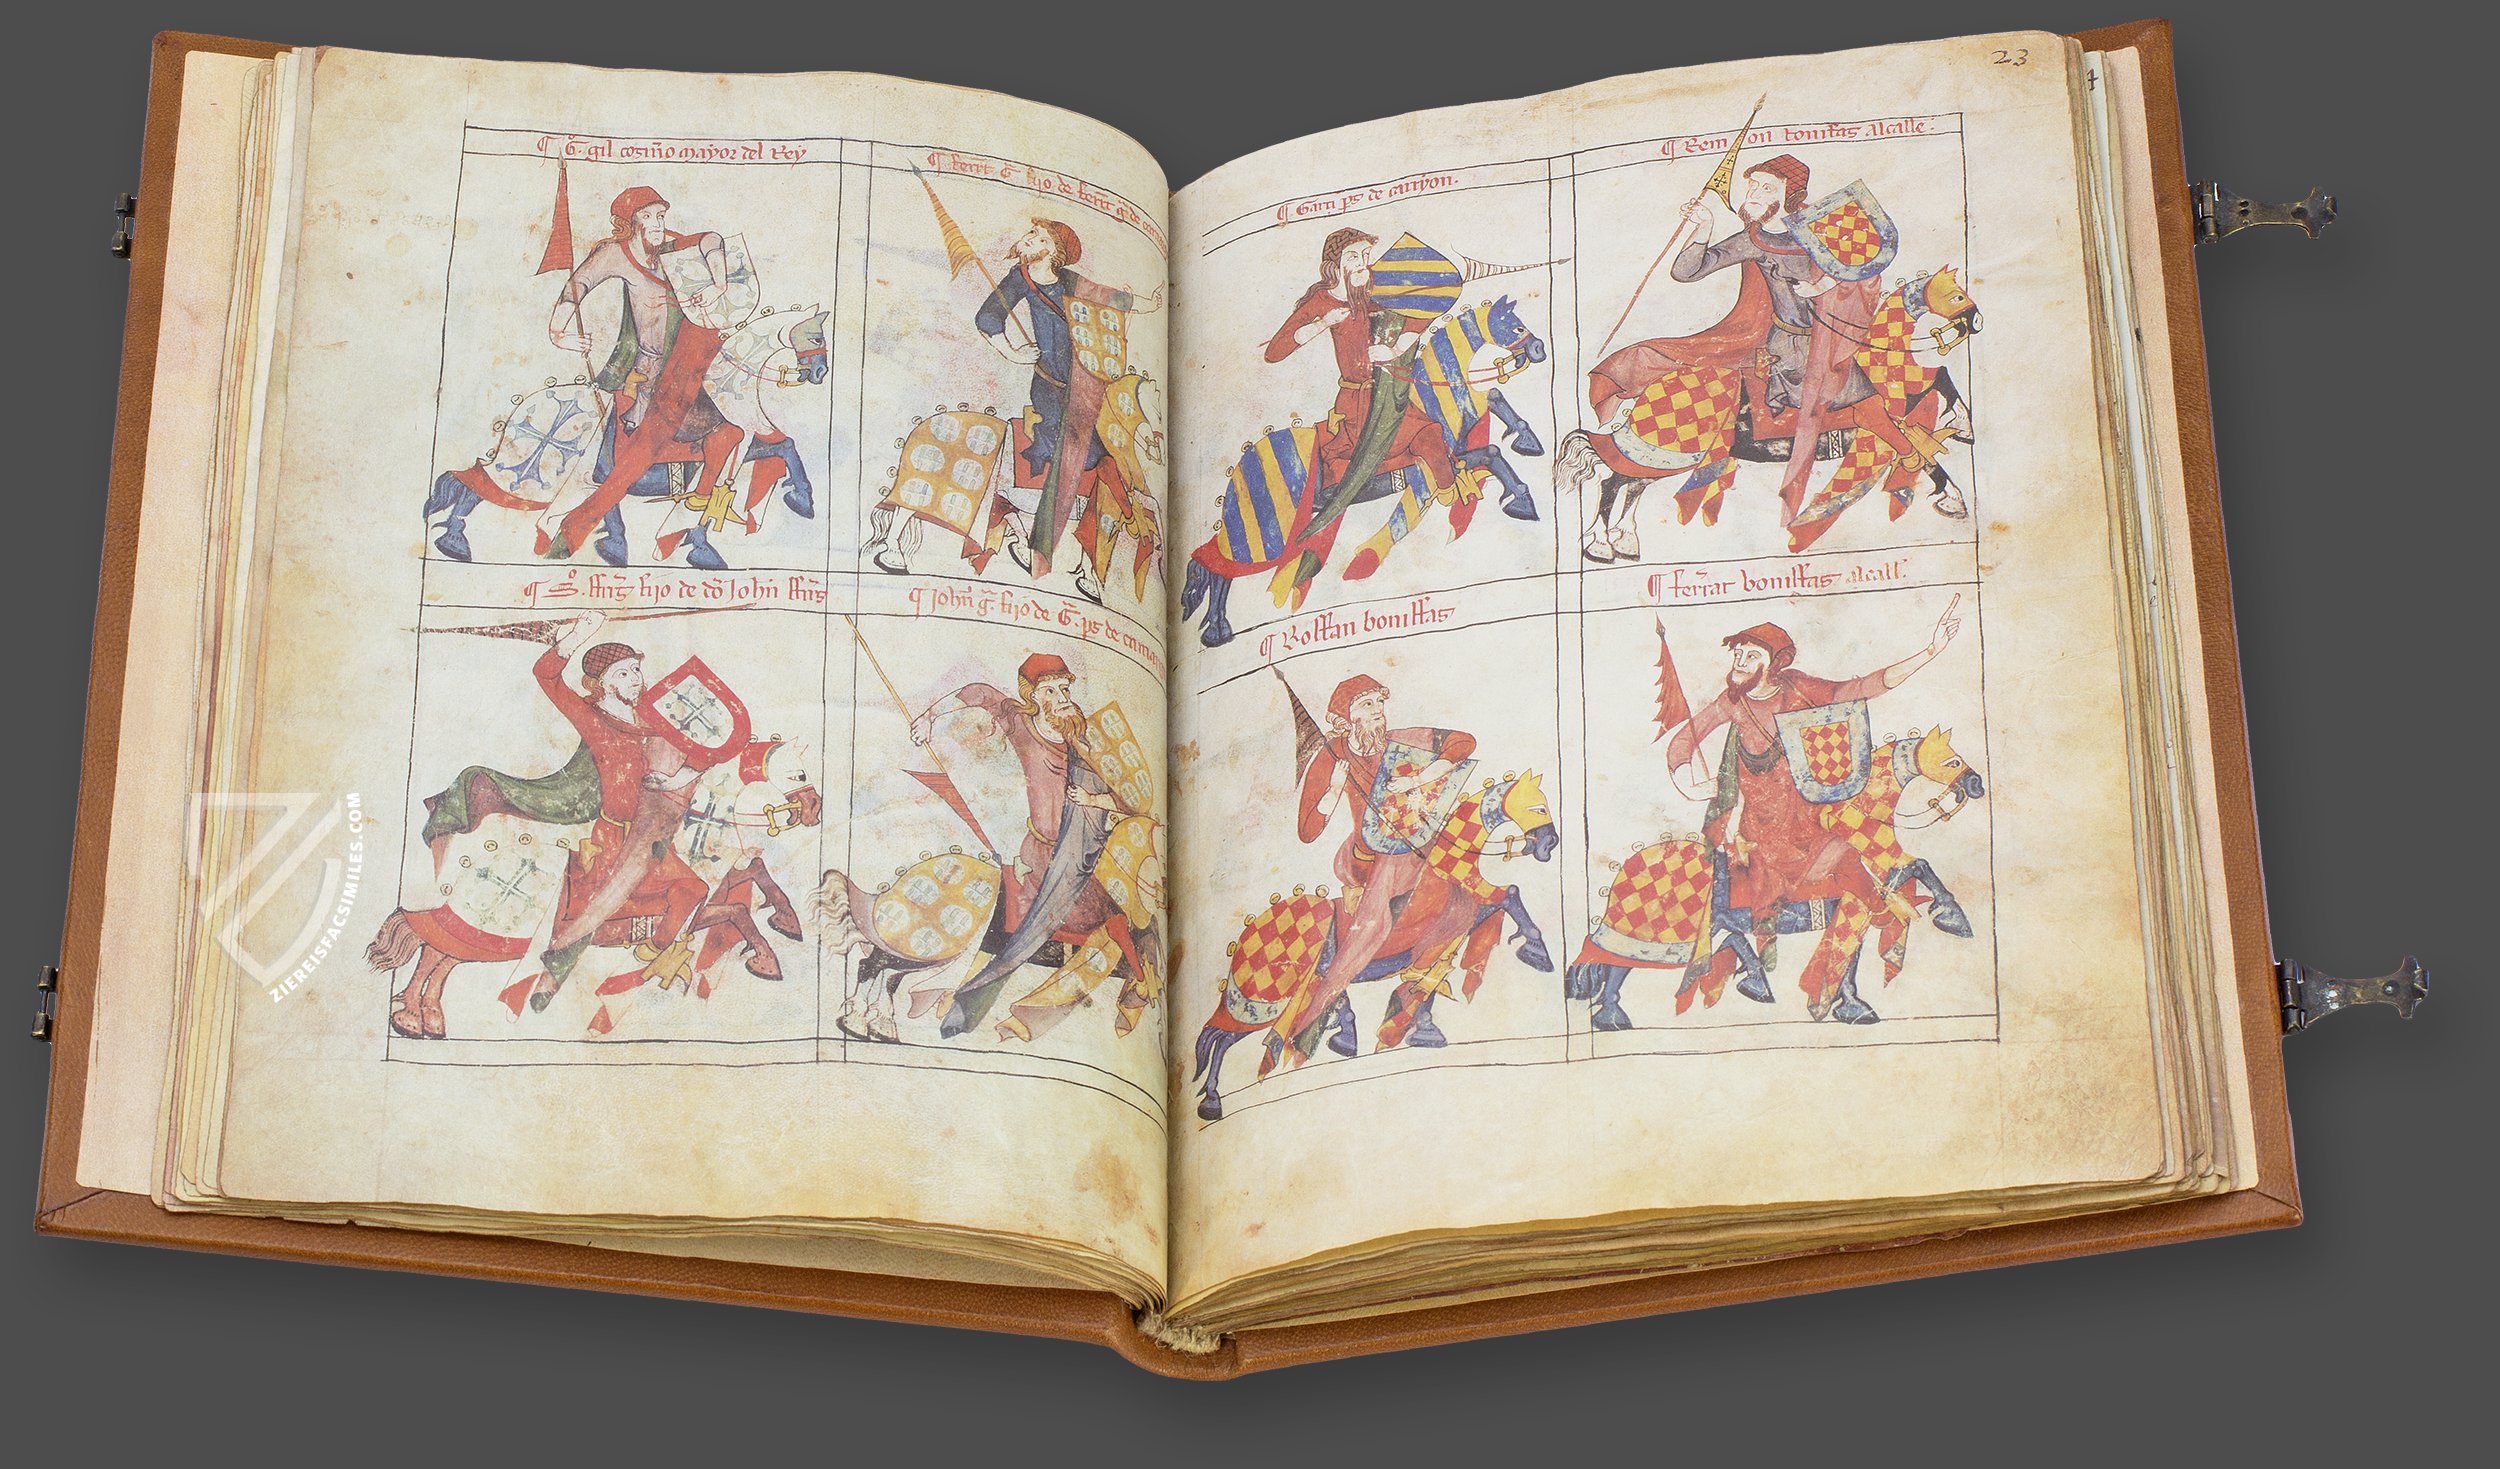 ¶ Gº. gil cosinero mayor del Rey
¶ ferrãt G. fijo de ferrãt G. de
¶ Gº. ffrrz fijo de dõ John ffrrz
¶ John G. fijo de G. ps de
23
¶ Garci ps de carryon.
¶ Remon bonifas alcalle.
¶ Roffan boniffas
¶ ferrat boniffas alcall.
4
ZIEREISFACSIMILES.COM